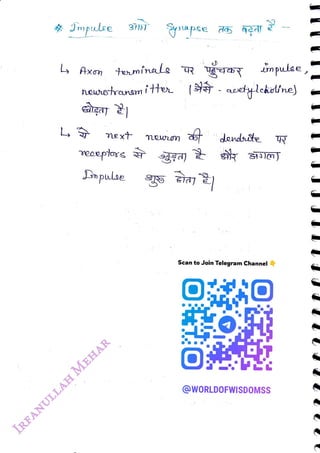 * Impulse आगे Synapse तक बढ़ता है -
↳ Axon terminals पर पहुँचकर impulse,
neurotransmitter (जैसे - acetylcholine)
छोड़ता है|
↳ ये next neuron की dendrite पर
receptors से जुड़ता है और अगला
Impulse शुरू होता है|
Scan to Join Telegram Channel 👇
@WORLDOFWISDOMSS
IRFANULLAH MEHAR